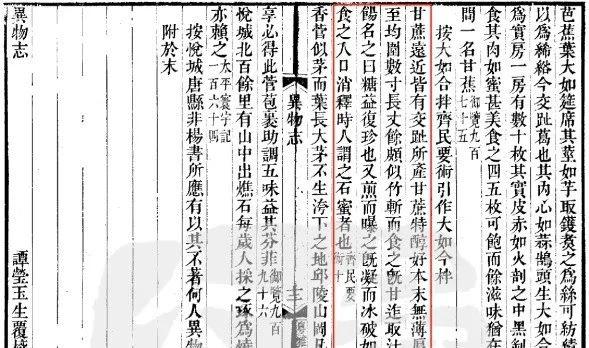 芭蕉葉大如筵席其莖如芋取鑊煑之爲絲可紡績
以爲絺綌今交趾葛也其内心如蒜鵠頭生大如合
爲實房一房有數十枚其實皮赤如火剖之中黑剝
食其肉如蜜甚美食之四五枚可飽而餘滋味猶在
間一名甘蕉御覽九百七十五
按大如合拌齊民要術引作大如今柈
甘蔗遠近皆有交趾所產甘蔗特醇好本末無薄厚
至均圍數寸長丈餘頗似竹斬而食之既甘迮取汁
餳名之曰糖益復珍也又煎而曝之既凝而冰破如
食之入口消釋時人謂之石蜜者也齊民要術十
香菅似茅而葉長大茅不生洿下之地邱陵山岡凡
異物志
享必得此菅苞裹助調五味益其芬菲御覽九百九十六
悅城北百餘里有山中出燋石每歲人採之琢爲燒
亦賴之太平寰宇記一百六十四
按悅城唐縣非楊書所應有以其不著何人異物
附於末
異物志
譚瑩玉生覆校